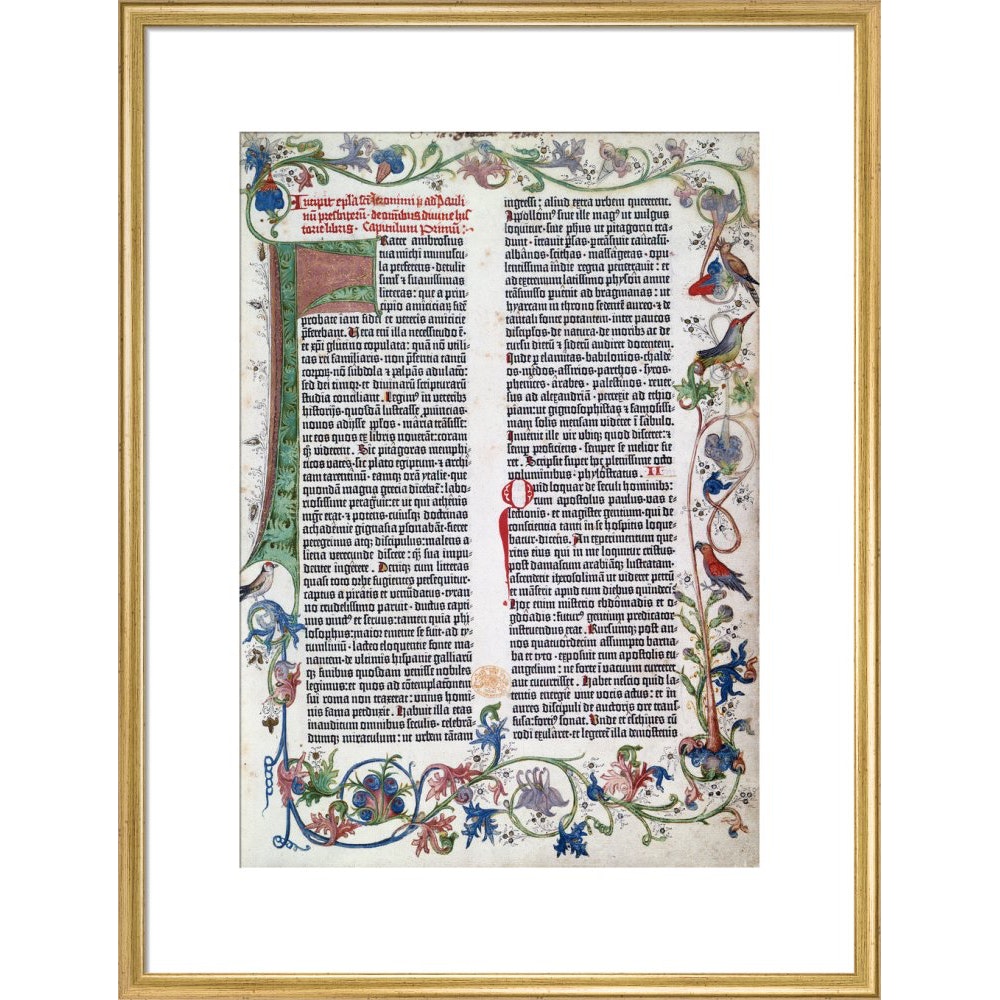 Incipit epła sāi Jeronimi p̄ ad Pauli
nū presbiterū · de omībus divine his
torie libris · Capitulum Primum:
Frater ambrosius
tua michi munuscu-
la perferens · detulit
simł & suavissimas
litteras: que a prin-
cipio amiciciarū · fidē
probate iam fidei et veteris amicicie
p̄ferebant. Vera enī illa necessitudo ē·
et xp̄i glutino copulata: quā nō utili-
tas rei familiaris · non p̄sentia tantū
corporꝫ · nō subdola & palpās adulatō:
sed dei timor · et divinarū scripturarū
studia conciliant. Legimꝰ in veteribꝫ
historijs · quosdā lustrasse p̄vincias ·
novos adijsse pplos · maria trāsisse:
ut eos quos ex libris noverāt: coram
qꝫ viderent. Sic pitagoras memphi-
ticos vates · sic plato egiptum · & archi-
tam tarentinū · eamqꝫ orā ytalie · que
quondā magna grecia dicebat̄: labo-
riosissime peragravit: et ut qui athenis
mgr̄ erat · & potens · cuiusqꝫ doctrinas
achademie gignasia p̄sonabāt · fieret
peregrinus atqꝫ discipulus: malens a-
liena verecunde discere: qꝫ sua impu-
denter ingērere. Deniqꝫ cum litteras
quasi toto orbe fugientes persequitur ·
captus a piratis et venūdatus · tyran-
no crudelissimo paruit · ductus capti-
vus vinctꝰ et servus: tamen quia phi-
losophus: maior emente se fuit · ad ty-
tumliviū · lacteo eloquentie fonte ma-
nantem · de ultimis hispanie galliarū
qꝫ finibus quosdam venisse nobiles
legimus: et quos ad cōtemplatōnem
sui roma non traxerat: unius homi-
nis fama perduxit. Habuit illa etas
inauditum omnibus seculis · celebrā-
dumqꝫ miraculum: ut urbem tātam
ingressi: aliud extra urbem quererent.
Appolloniꝰ sive ille magꝰ ut vulgus
loquitur · sive phus ut pitagorici tra-
dunt · itravit p̄sas · p̄trāsivit caucasū ·
albanos · scithas · massagetas · opu-
lentissima īdie regna penetravit: et
ad extremum latissimo physon amne
trāsmisso pūenit ad bragmanas: ut
hyarcam in throno sedentē aureo · & de
tantali fonte potantem · inter paucos
discip̄los · de natura · de moribꝫ ac de
cursu dierū & siderū audiret docentem.
Inde p̄ elamitas · babilonios · chalde-
os · medos · assirios · parthos · syros ·
phenices · arabes · palestinos · rever-
sus ad alexandriā · perrexit ad ethio-
piam: ut gignosophistas & famosissi-
mam solis mensam videret ī sabulo.
Invenit ille vir ubiqꝫ quod disceret: &
semp̄ proficiens · semper se melior fie-
ret. Scripsit super hoc plenissime octo
voluminibus · phylostratus. II
Quid loquar de seculi hominibꝫ:
cum apostolus paulus · vas e-
lectionis · et magister gentium · qui de
conscientia tanti in se hospitis loque-
batur · dicens. An experimentum que-
ritis eius qui in me loquitur cristus ·
post damascum arabiāqꝫ lustratam ·
ascenderit iherosolimā ut videret petrū
et māserit apud eum diebus quindecī.
Hoc enim misterio ebdomadis et o-
gdoadis: futurꝰ gentium predicator
instruendus erat. Rursumqꝫ post an-
nos quatuordecim assumpto barna-
ba et tyto · exposuit cum apostolis eu-
angelium: ne forte ī vacuum curreret
aut cucurrisset. Habet nescio quid la-
tentis energie vive vocis actus: et in
aures discipuli de auctoris ore trans-
fusa: fortiꝰ sonat. Unde et eschines cū
rodi exularet · et legeret illa demostenis